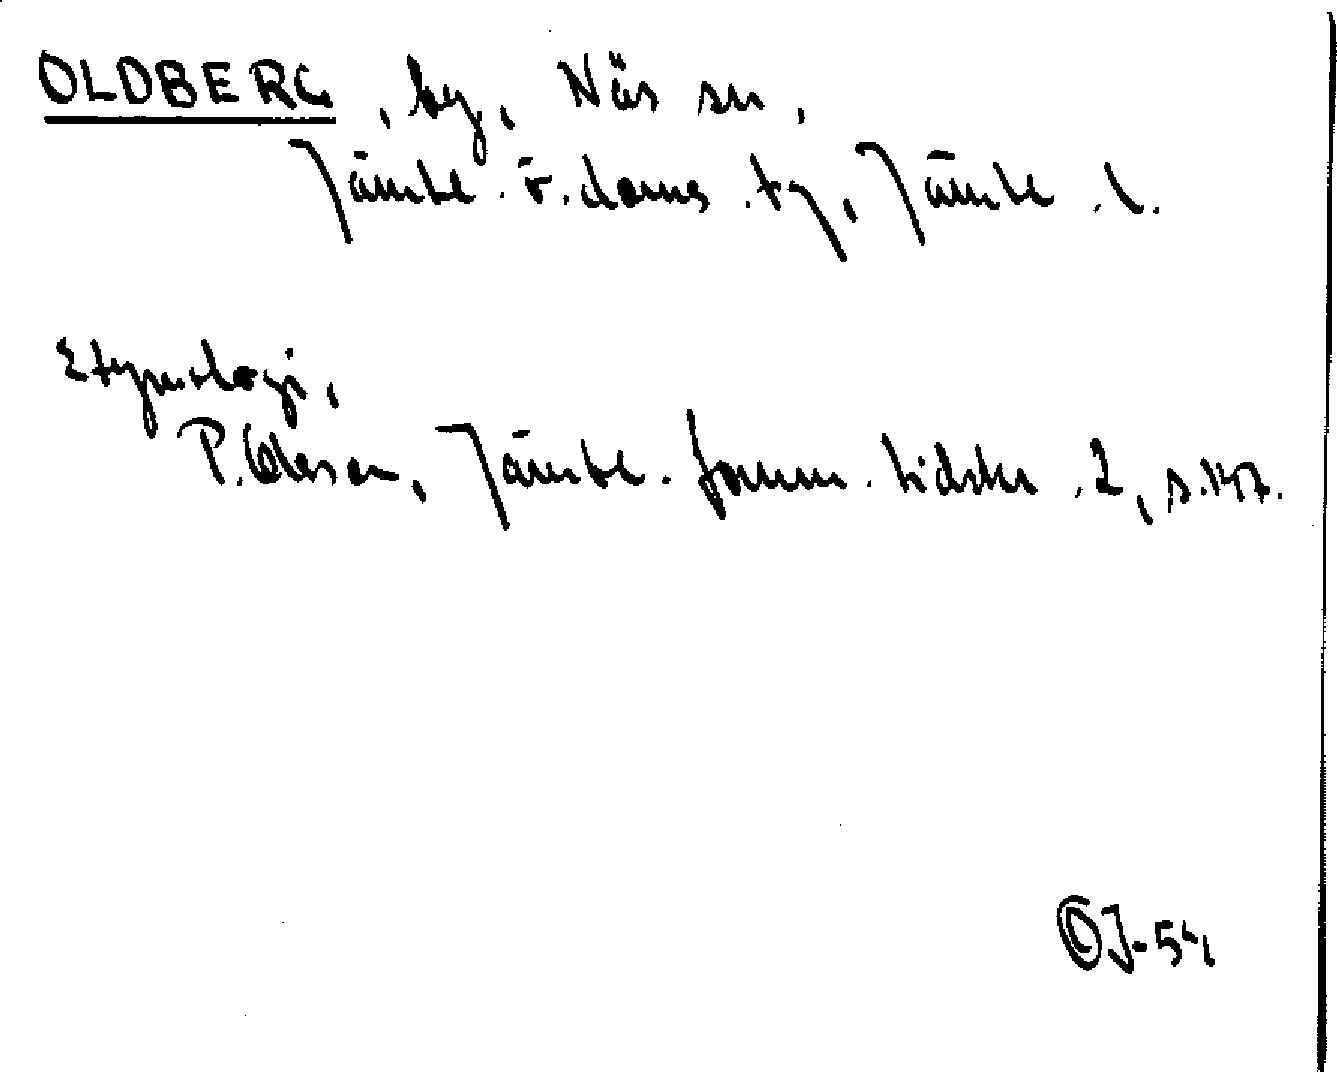 OLDBERG, by, Näs sn,
Jämtl. v. doms. tg, Jämtl. l.
Etymologi,
P. Olsson, Jämtl. fornm. tidskr. 2, s. 147.
J-54